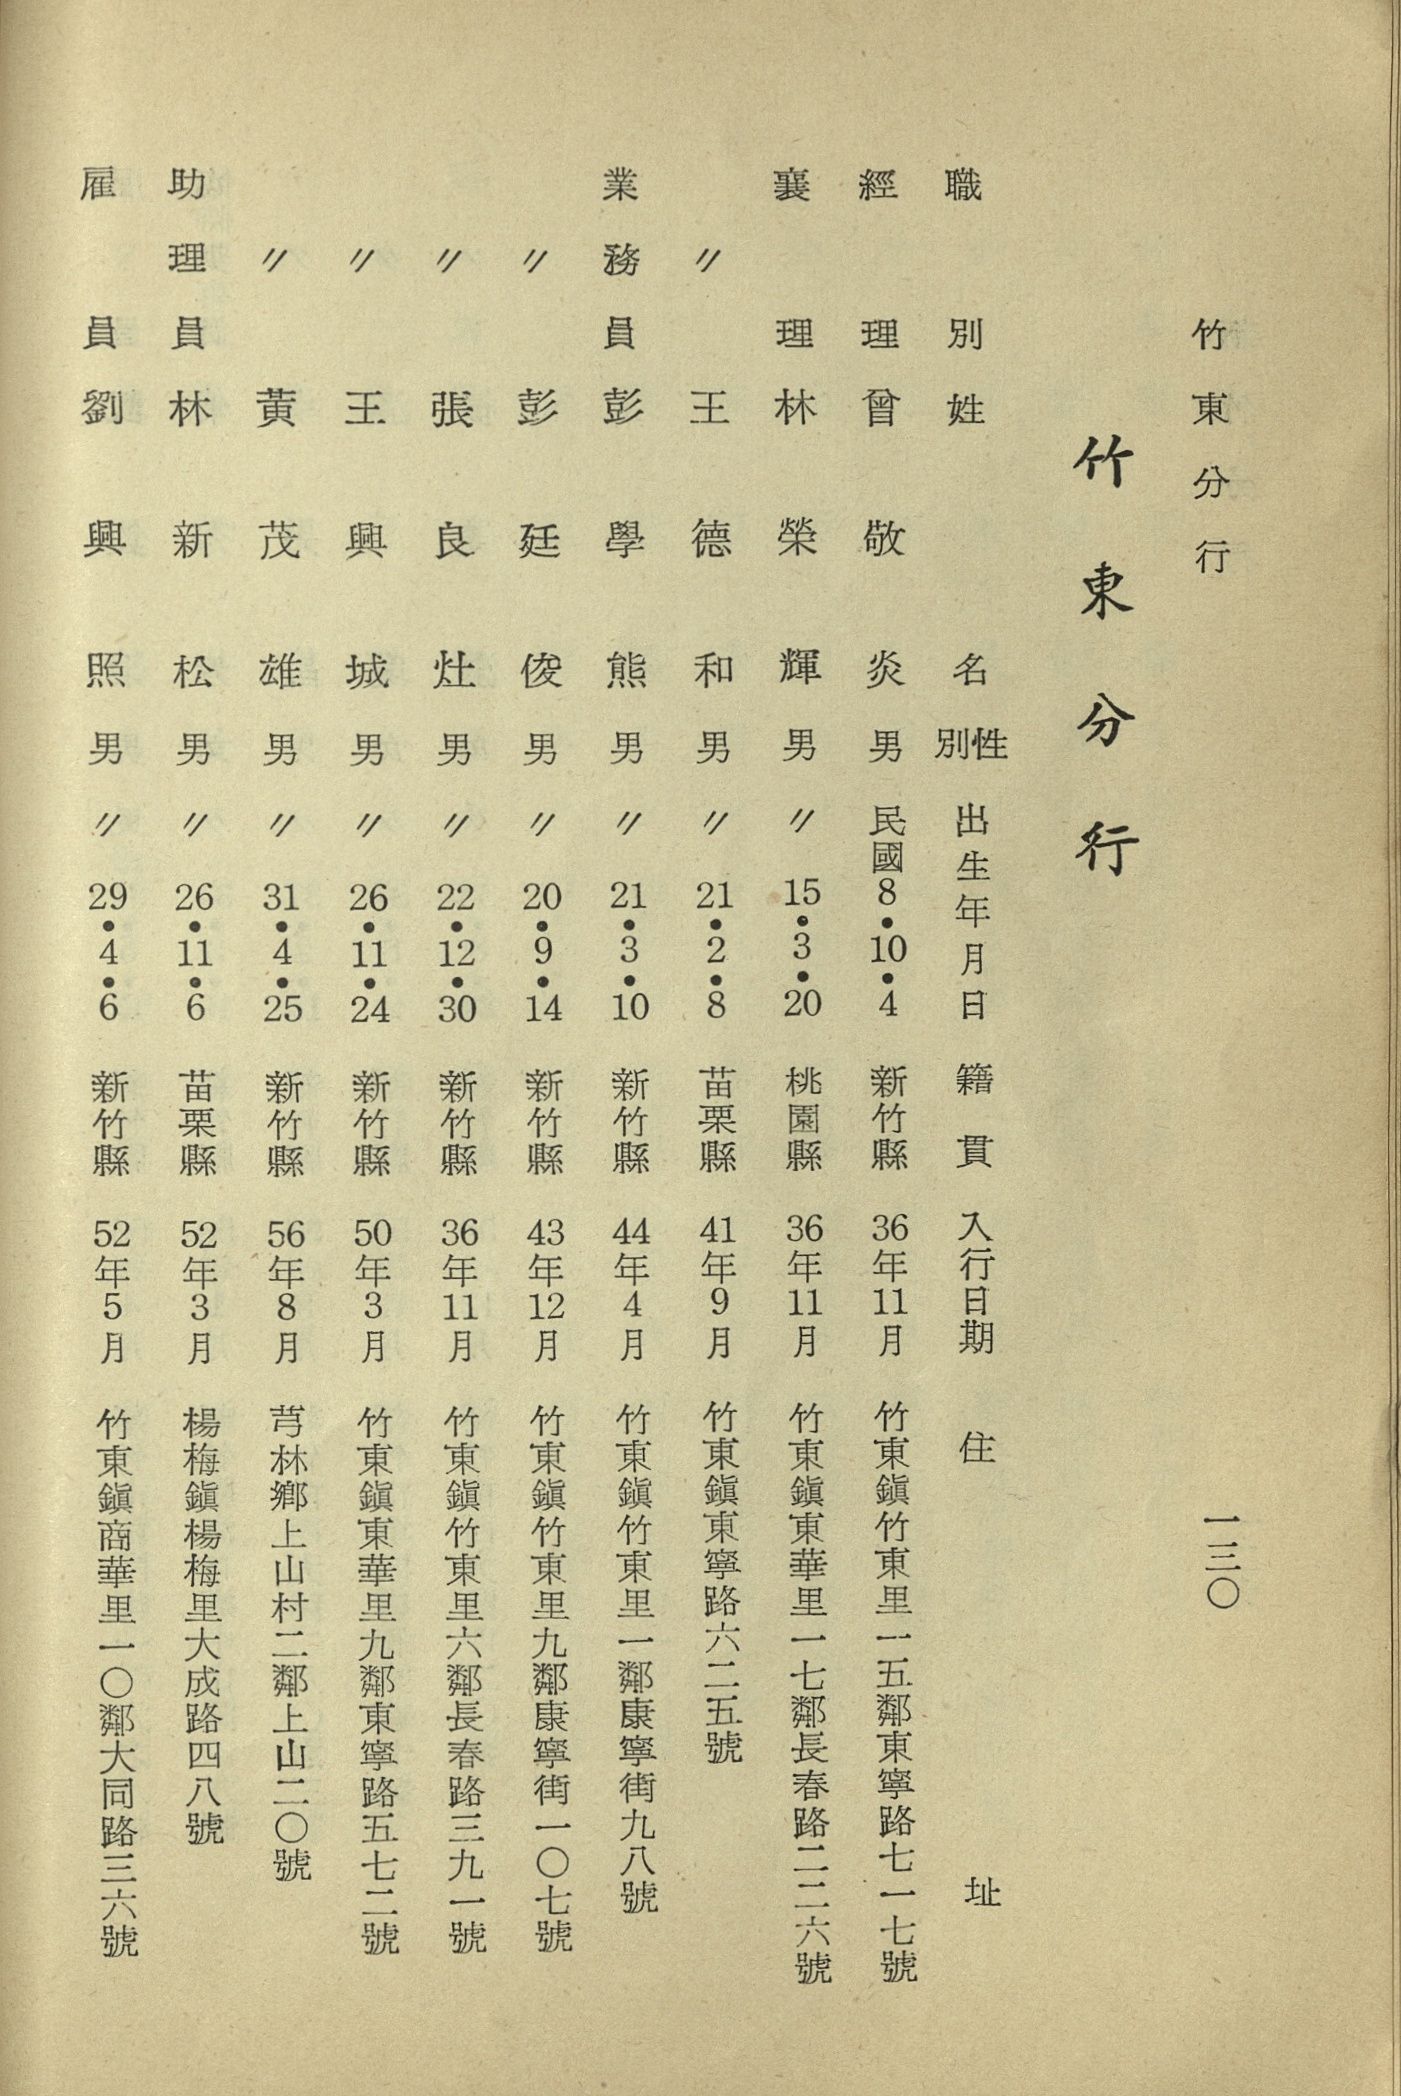 竹東分行
一三〇
竹東分行
職別姓名性別出生年月日籍貫入行日期住址
經理曾敬炎男民國8•10•4新竹縣36年11月竹東鎭竹東里一五鄰東寧路七一七號
襄理林榮輝男〃15•3•20桃園縣36年11月竹東鎭東華里一七鄰長春路二二六號
〃王德和男〃21•2•8苗栗縣41年9月竹東鎭東寧路六二五號
業務員彭學熊男〃21•3•10新竹縣44年4月竹東鎭竹東里一鄰康寧街九八號
〃彭廷俊男〃20•9•14新竹縣43年12月竹東鎭竹東里九鄰康寧街一〇七號
〃張良灶男〃22•12•30新竹縣36年11月竹東鎭竹東里六鄰長春路三九一號
〃王興城男〃26•11•24新竹縣50年3月竹東鎭東華里九鄰東寧路五七二號
〃黃茂雄男〃31•4•25新竹縣56年8月芎林鄉上山村二鄰上山二〇號
助理員林新松男〃26•11•6苗栗縣52年3月楊梅鎭楊梅里大成路四八號
雇員劉興照男〃29•4•6新竹縣52年5月竹東鎭商華里一〇鄰大同路三六號